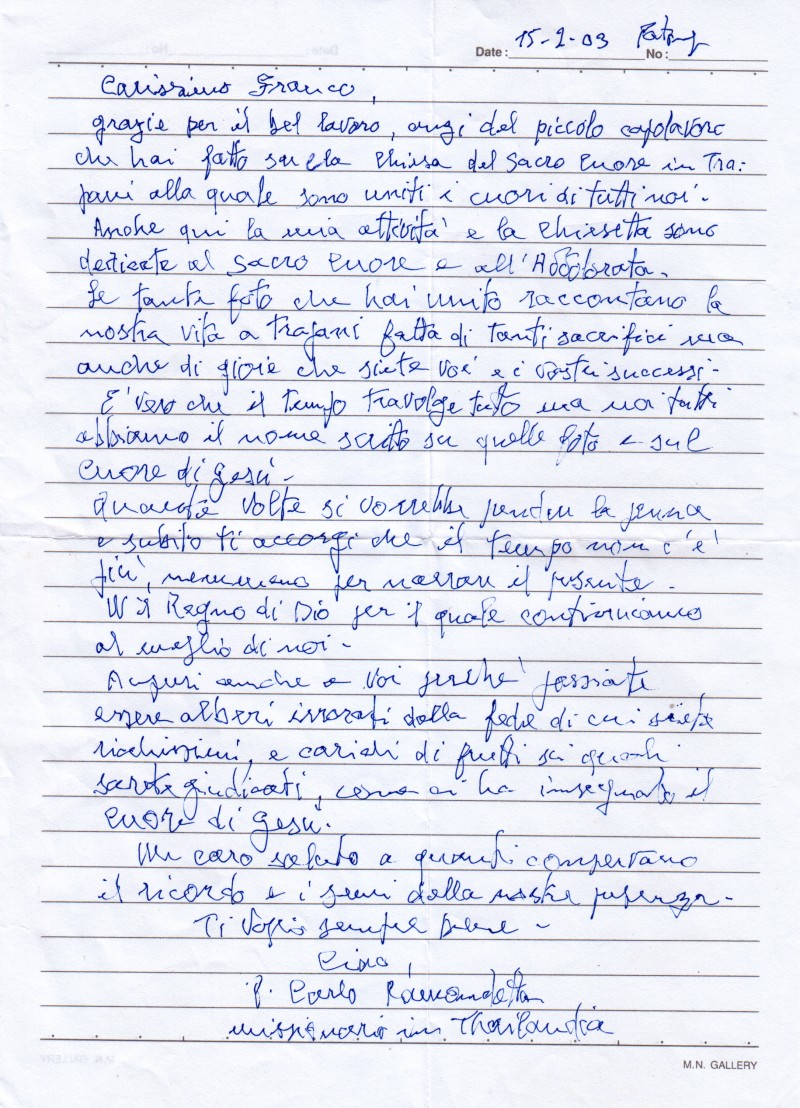 Date: 15-2-03 No:
Carissimo Franco,
grazie per il bel lavoro, anzi del piccolo capolavoro
che hai fatto sulla Chiesa del Sacro Cuore in Tra-
pani alla quale sono uniti i cuori di tutti noi.
Anche qui la mia attività e la Chiesetta sono
dedicate al Sacro Cuore e all'Addolorata.
Le tante foto che hai unito raccontano la
nostra vita a Trapani fatta di tanti sacrifici ma
anche di gioie che siete voi e i vostri successi-
E' vero che il tempo travolge tutto ma noi tutti
abbiamo il nome scritto su quelle foto e sul
Cuore di Gesù-
Quante volte si vorrebbe prender la penna
e subito ti accorgi che il tempo non c'è
più, nemmeno per narrare il presente-
W il Regno di Dio per il quale continuiamo
al meglio di noi-
Auguri anche a voi perché possiate
essere alberi irrorati dalla fede di cui siete
ricchissimi, e carichi di frutti sui quali
sarete giudicati, come ci ha insegnato il
Cuore di Gesù.
Un caro saluto a quanti conservano
il ricordo e i semi della nostra presenza-
Ti voglio sempre bene-
Ciao,
P. Carlo
missionario in Thailandia
M.N. GALLERY